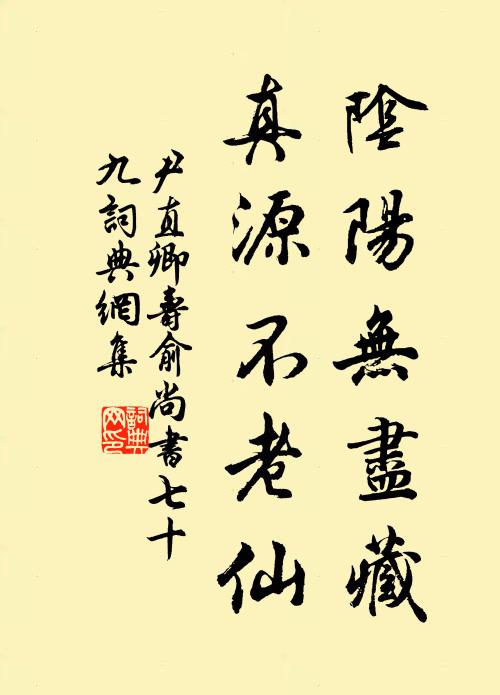 陰陽無盡藏
真源不老仙
尹直卿壽俞尚書七十
九詞典網集
詞典
网印